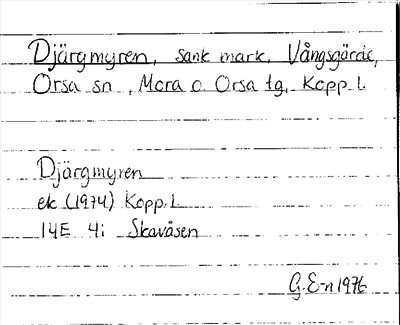 Djärgmyren, sank mark, Vångsgärde,
Orsa sn, Mora o Orsa tg, Kopp. l.
Djärgmyren
ek (1974) Kopp. l.
14E 4i Skavåsen
G. E-n 1976